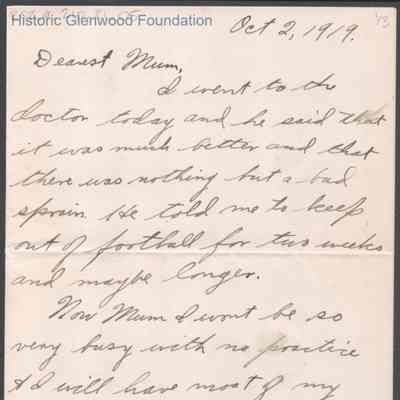 Historic Glenwood Foundation
Oct 2, 1919.
Dearest Mum,
I went to the
doctor today and he said that
it was much better and that
there was nothing but a bad
sprain. He told me to keep
out of football for two weeks
and maybe longer.
Now Mum I wont be so
very busy with no practice
& I will have most of my